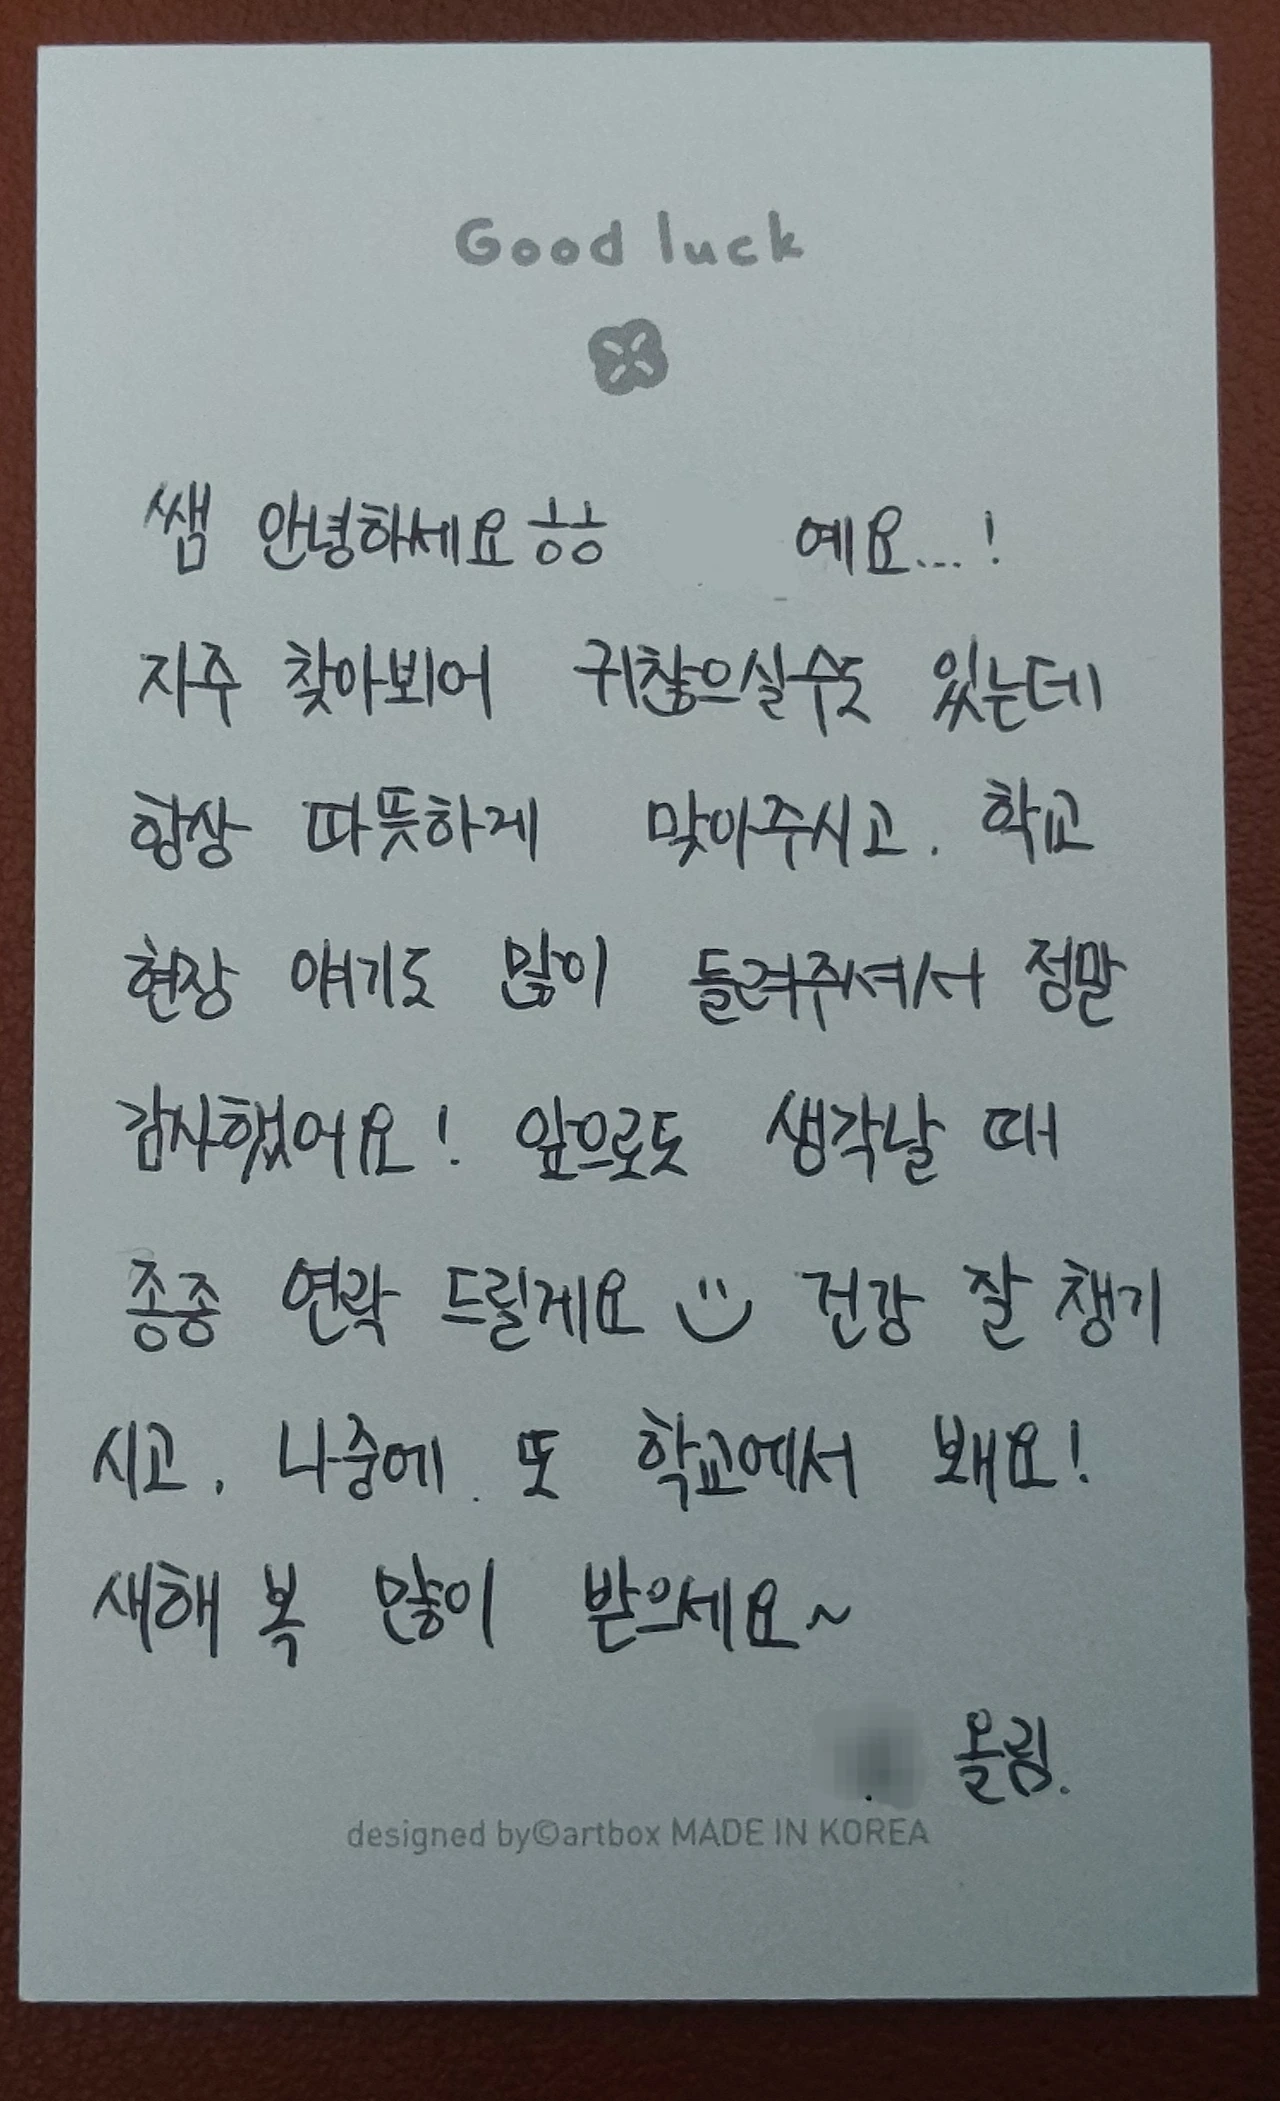 Good luck
쌤 안녕하세요ㅎㅎ 예요...!
자주 찾아뵈어 귀찮으실수도 있는데
항상 따뜻하게 맞아주시고. 학교
현장 얘기도 많이 들려주셔서 정말
감사했어요! 앞으로도 생각날 때
종종 연락 드릴게요 건강 잘 챙기
시고, 나중에 또 학교에서 봬요!
새해 복 많이 받으세요~
올림.
designed by©artbox MADE IN KOREA